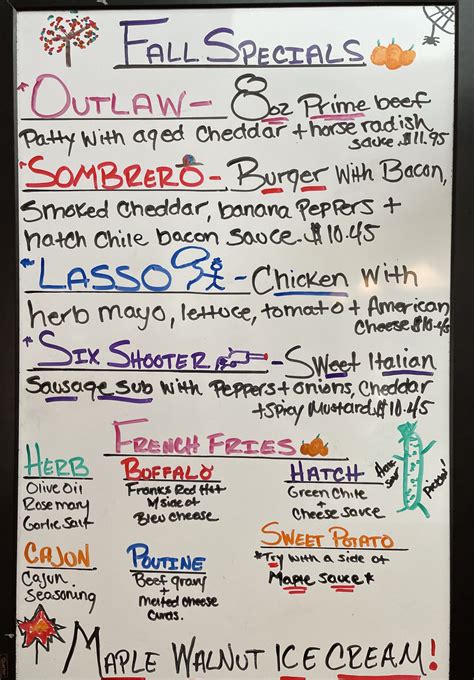 FALL SPECIALS
OUTLAW - 8oz Prime beef
Patty with aged cheddar + horse radish
sauce. $11.95
SOMBRERO - Burger with Bacon,
smoked cheddar, banana peppers +
hatch chile bacon sauce. $10.45
LASSO - Chicken with
herb mayo, lettuce, tomato + American
Cheese $10.45
SIX SHOOTER - Sweet Italian
Sausage sub with Peppers + onions, cheddar
+ spicy mustard. $10.45
FRENCH FRIES
HERB
Olive Oil
Rosemary
Garlic salt
BUFFALO
Franks Red Hot
w/side of
Bleu cheese
HATCH
Green Chile
+
Cheese sauce
CAJON
Cajun
Seasoning
POUTINE
Beef gravy
+
melted cheese
curds.
SWEET POTATO
*Try with a side of
Maple sauce*
MAPLE WALNUT ICE CREAM!